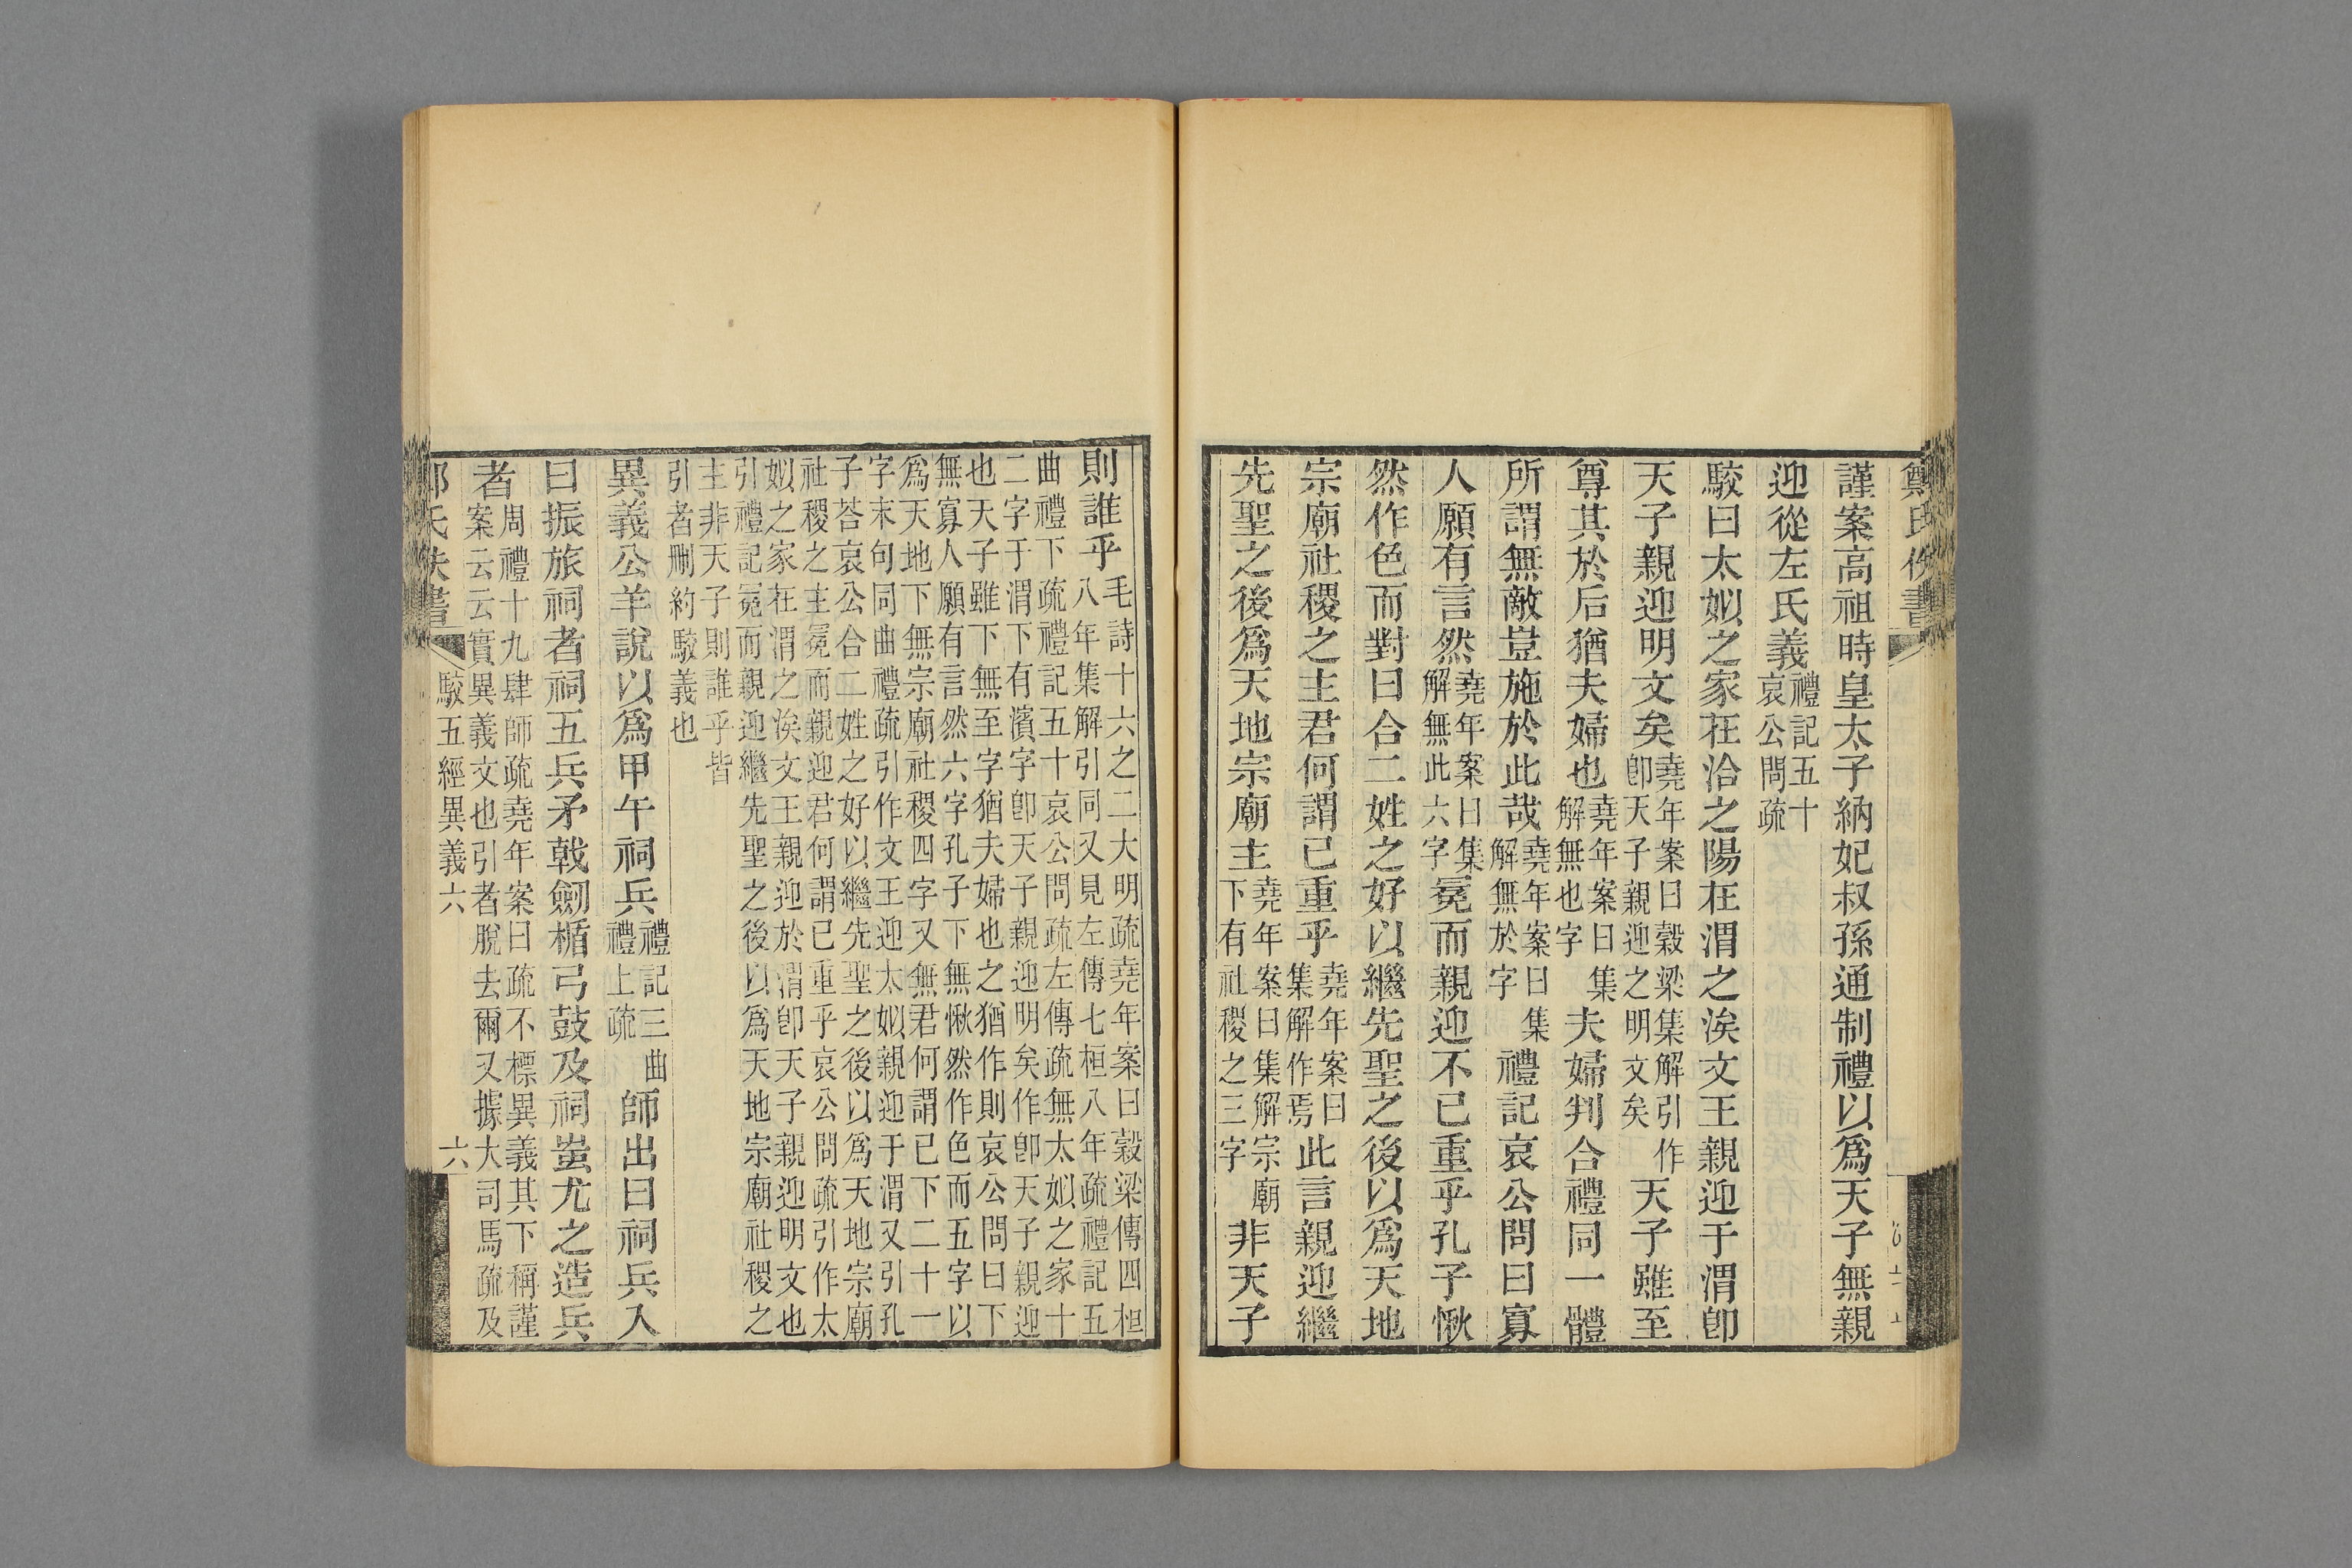 謹案高祖時皇太子納妃叔孫通制禮以爲天子無親
迎從左氏義禮記五十哀公問疏
駮曰太姒之家在洽之陽在渭之涘文王親迎于渭卽
天子親迎明文矣堯年案曰穀梁集解引作卽天子親迎之明文矣天子雖至
尊其於后猶夫婦也堯年案曰集解無也字夫婦判合禮同一體
所謂無敵豈施於此哉堯年案曰集解無於字禮記哀公問曰寡
人願有言然堯年案曰集解無此六字冕而親迎不已重乎孔子愀
然作色而對曰合二姓之好以繼先聖之後以爲天地
宗廟社稷之主君何謂已重乎堯年案曰集解作焉此言親迎繼
先聖之後爲天地宗廟主堯年案曰集解宗廟下有社稷之三字非天子
則誰乎毛詩十六之二大明疏堯年案曰穀梁傳四桓八年集解引同又見左傳七桓八年疏禮記五
曲禮下疏禮記五十哀公問疏左傳疏無太姒之家十二字于渭下有濱字卽天子親迎明矣作卽天子親迎
也天子雖下無至字猶夫婦也之猶作則哀公問曰下無寡人願有言然六字孔子下無愀然作色而五字以
爲天地下無宗廟社稷四字又無君何謂已下二十一字末句同曲禮疏引作文王迎太姒親迎于渭又引孔
子荅哀公合二姓之好以繼先聖之後以爲天地宗廟社稷之主冕而親迎君何謂已重乎哀公問疏引作太
姒之家在渭之涘文王親迎於渭卽天子親迎明文也引禮記冕而親迎繼先聖之後以爲天地宗廟社稷之
主非天子則誰乎皆引者刪約駮義也
異義公羊說以爲甲午祠兵禮記三曲禮上疏師出曰祠兵入
曰振旅祠者祠五兵矛戟劒楯弓鼓及祠蚩尤之造兵
者周禮十九肆師疏堯年案曰疏不標異義其下稱謹案云云實異義文也引者脫去爾又據大司馬疏及
駮五經異義六
六